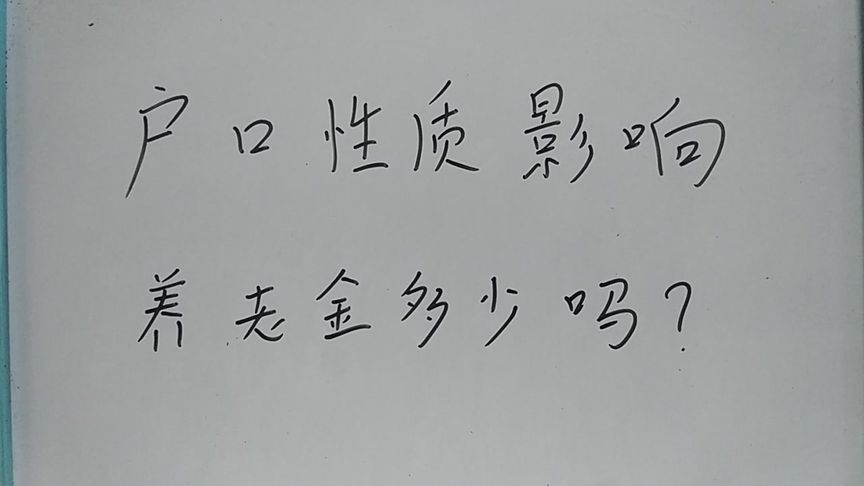 户口性质影响
养老金多少吗？